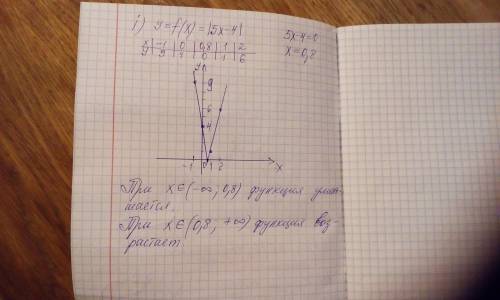 1) y=f(x)=|5x-4|
5x-4=0
x=0,8
x | -1 | 0 | 0,8 | 1 | 2
y | 9 | 4 | 0 | 1 | 6
y
9
6
4
-1 0 1 2 x
При x∈(-∞; 0,8) функция умень-
шается.
При x∈(0,8; +∞) функция воз-
растает.